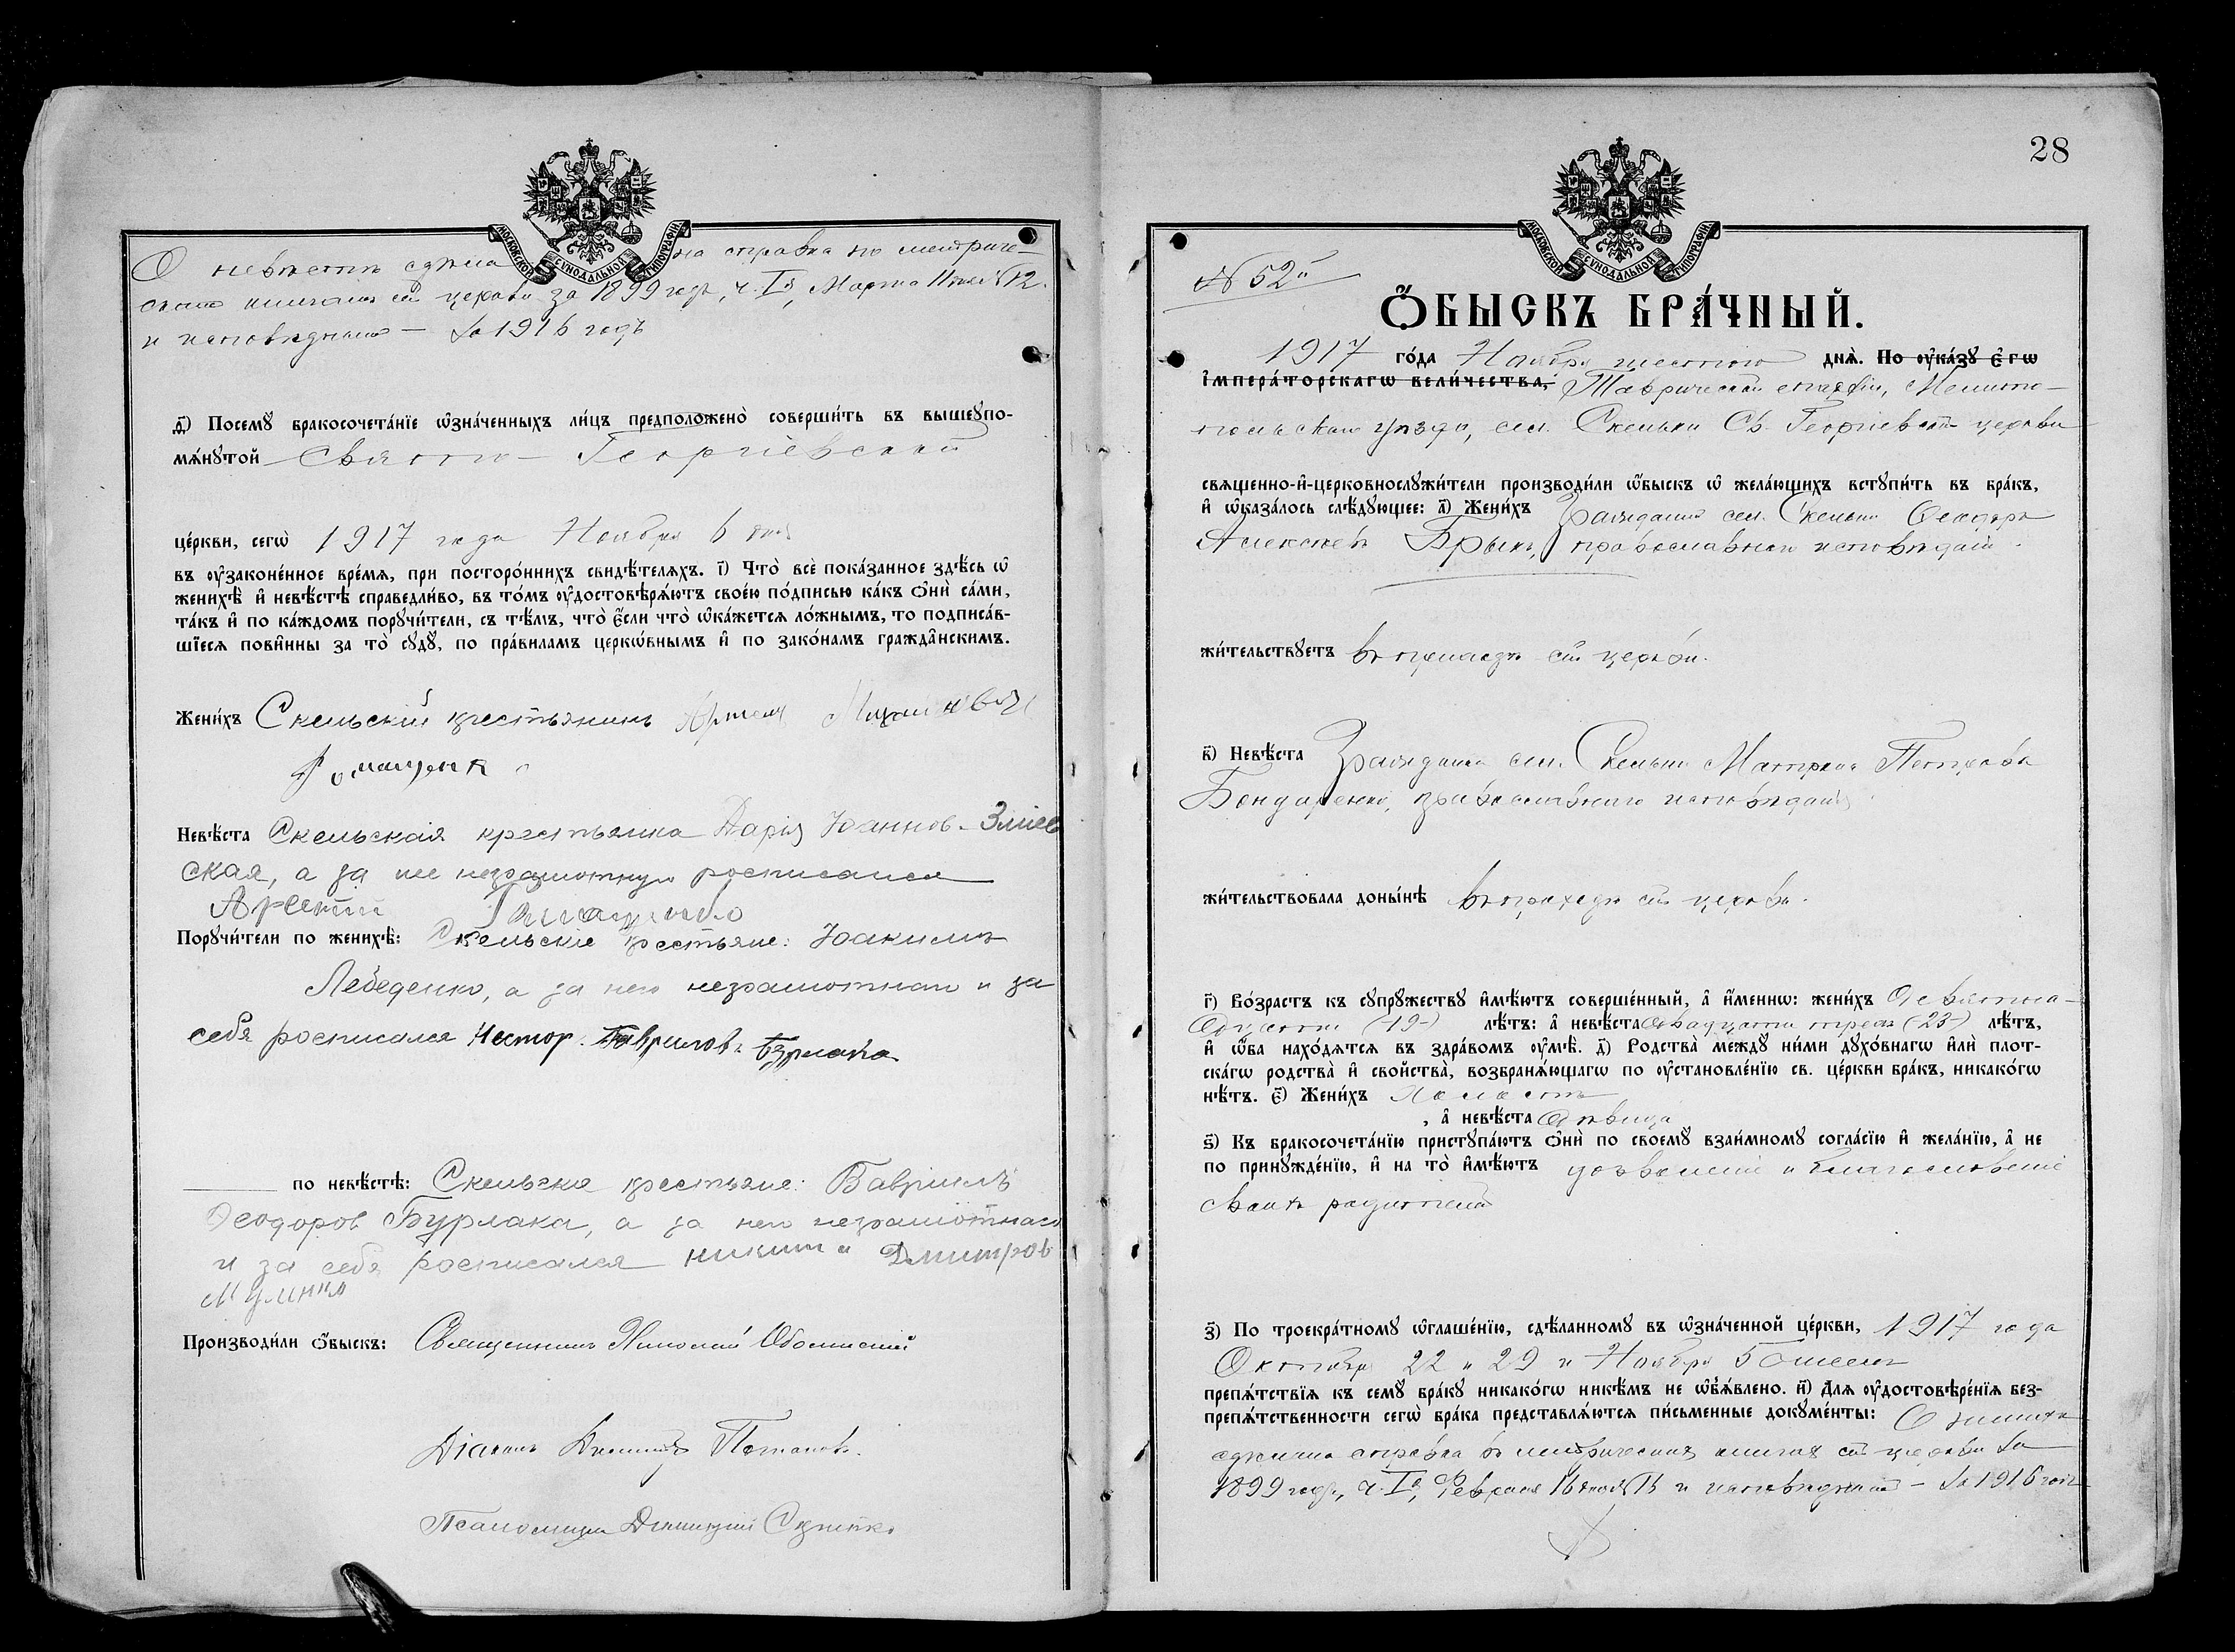 МОСКОВСКОЙ СѴНОДАЛЬНОЙ ТИПОГРАФІИ.
О невѣстѣ сдѣла на справка по метриче-
скимъ книгамъ сей церкви за 1899 годъ, ч. Iя, Марта №12.
и исповѣднымъ — за 1916 годъ
д҃) Посемꙋ̀ бракосочета́нїе ѡ҆зна́ченныхъ ли́цъ предположено̀ соверши́ть въ вышеꙋпо-
мѧ́нꙋтой Свято- Георгіевской
це́ркви, сегѡ̀ 1917 года Ноября 6 дня
въ ᲂу҆законе́нное вре́мѧ, при посторо́ннихъ свидѣ́телѧхъ. і҃) Что̀ всѐ пока́занное здѣ́сь ѡ҆
женихѣ̀ и҆ невѣ́стѣ справедли́во, въ то́мъ ᲂу҆достовѣрѧ́ютъ свое́ю по́дписью ка́къ ѻ҆нѝ са́ми,
та́къ и҆ по ка́ждомъ порꙋчи́тели, съ тѣ́мъ, что̀ є҆́сли что̀ ѡ҆ка́жетсѧ ло́жнымъ, то подписа́в-
шїесѧ пови́нны за то̀ сꙋдꙋ̀, по пра́виламъ церкѡ́внымъ и҆ по зако́намъ гражда̑нскимъ.
Жени́хъ Скельскій крестьянинъ
Невѣ́ста Скельская крестьянка Дарія Іоаннов. Зміев
ская, а за нее неграмотную росписался
Арсеній
Порꙋчи́тели по женихѣ̀: Скельскіе крестьяне: Іоакимъ
Лебеденко, а за него неграмотнаго и за
себя росписался Нестор. Гаврилов. Бурлака
по невѣ́стѣ: Скельскіе крестьяне: Гавріилъ
Ѳеодоров Бурлака, а за него неграмотнаго
и за себя росписался Никита Дмитров
Производи́ли ѻ҆́быскъ: Священникъ Николай
Діаконъ Димитрій Потаповъ.
Псаломщикъ Димитрій
28
МОСКОВСКОЙ СѴНОДАЛЬНОЙ ТИПОГРАФІИ.
№ 52й
Ѻ҆́БЫСКЪ БРА́ЧНЫЙ.
1917 го́да Ноября шестого днѧ̀. По ᲂу҆ка́зꙋ є҆гѡ̀
і҆мпера́торскагѡ вели́чества, Таврической епархіи, Мелито-
польскаго уѣзда, сел. Скельки Св. Георгіевской церкви
свѧщенно-и҆-церковнослꙋжи́тели производи́ли ѡ҆́быскъ ѡ҆ жела́ющихъ встꙋпи́ть въ бра́къ,
и҆ ѡ҆каза́лось слѣ́дꙋющее: а҃) Жени́хъ Гражданинъ сел. Скельки Ѳеодоръ
Алексѣевъ Брыкъ, православнаго исповѣданія.
жи́тельствꙋетъ въ приходѣ сей церкви.
в҃) Невѣ́ста Гражданка сел. Скельки Матрона Петрова
Бондаренко, православнаго исповѣданія
жи́тельствовала доны́нѣ въ приходѣ сей церкви.
г҃) Во́зрастъ къ сꙋпрꙋ́жествꙋ и҆мѣ́ютъ соверше́нный, а҆ и҆́меннѡ: жени́хъ девятна-
дцати (-19-) лѣ́тъ: а҆ невѣ́ста двадцати трехъ (-23-) лѣ́тъ,
и҆ ѡ҆́ба нахо́дѧтсѧ въ здра́вомъ ᲂу҆мѣ̀. д҃) Родства̀ междꙋ̀ ни́ми дꙋхо́внагѡ и҆лѝ плот-
ска́гѡ родства̀ и҆ сво́йства̀, возбранѧ́ющагѡ по ᲂу҆становле́нїю св. це́ркви бра́къ, никако́гѡ
нѣ́тъ. є҃) Жени́хъ Холостъ
, а҆ невѣ́ста дѣвица
ѕ҃) Къ бракосочета́нїю пристꙋпа́ютъ ѻ҆нѝ по своемꙋ̀ взаи́мномꙋ согла́сїю и҆ жела́нїю, а҆ не
по принꙋжде́нїю, и҆ на то̀ и҆мѣ́ютъ дозволеніе и благословеніе
своихъ родителей
з҃) По троекра́тномꙋ ѡ҆глаше́нїю, сдѣ́ланномꙋ въ ѡ҆зна́ченной це́ркви, 1917 года
Октября 22 и 29 и Ноября 5 чиселъ
препѧ́тствїѧ къ семꙋ̀ бра́кꙋ никако́гѡ никѣ́мъ не ѡ҆б̾ѧ́влено. и҃) Длѧ ᲂу҆достовѣре́нїѧ без-
препѧ́тственности сегѡ̀ бра́ка представлѧ́ютсѧ пи́сьменные докꙋме́нты: О женихѣ
сдѣлана справка въ метрическихъ книгахъ сей церкви за
1899 годъ, ч. Iя, Февраля 16 и исповѣдной — за 1916 годъ